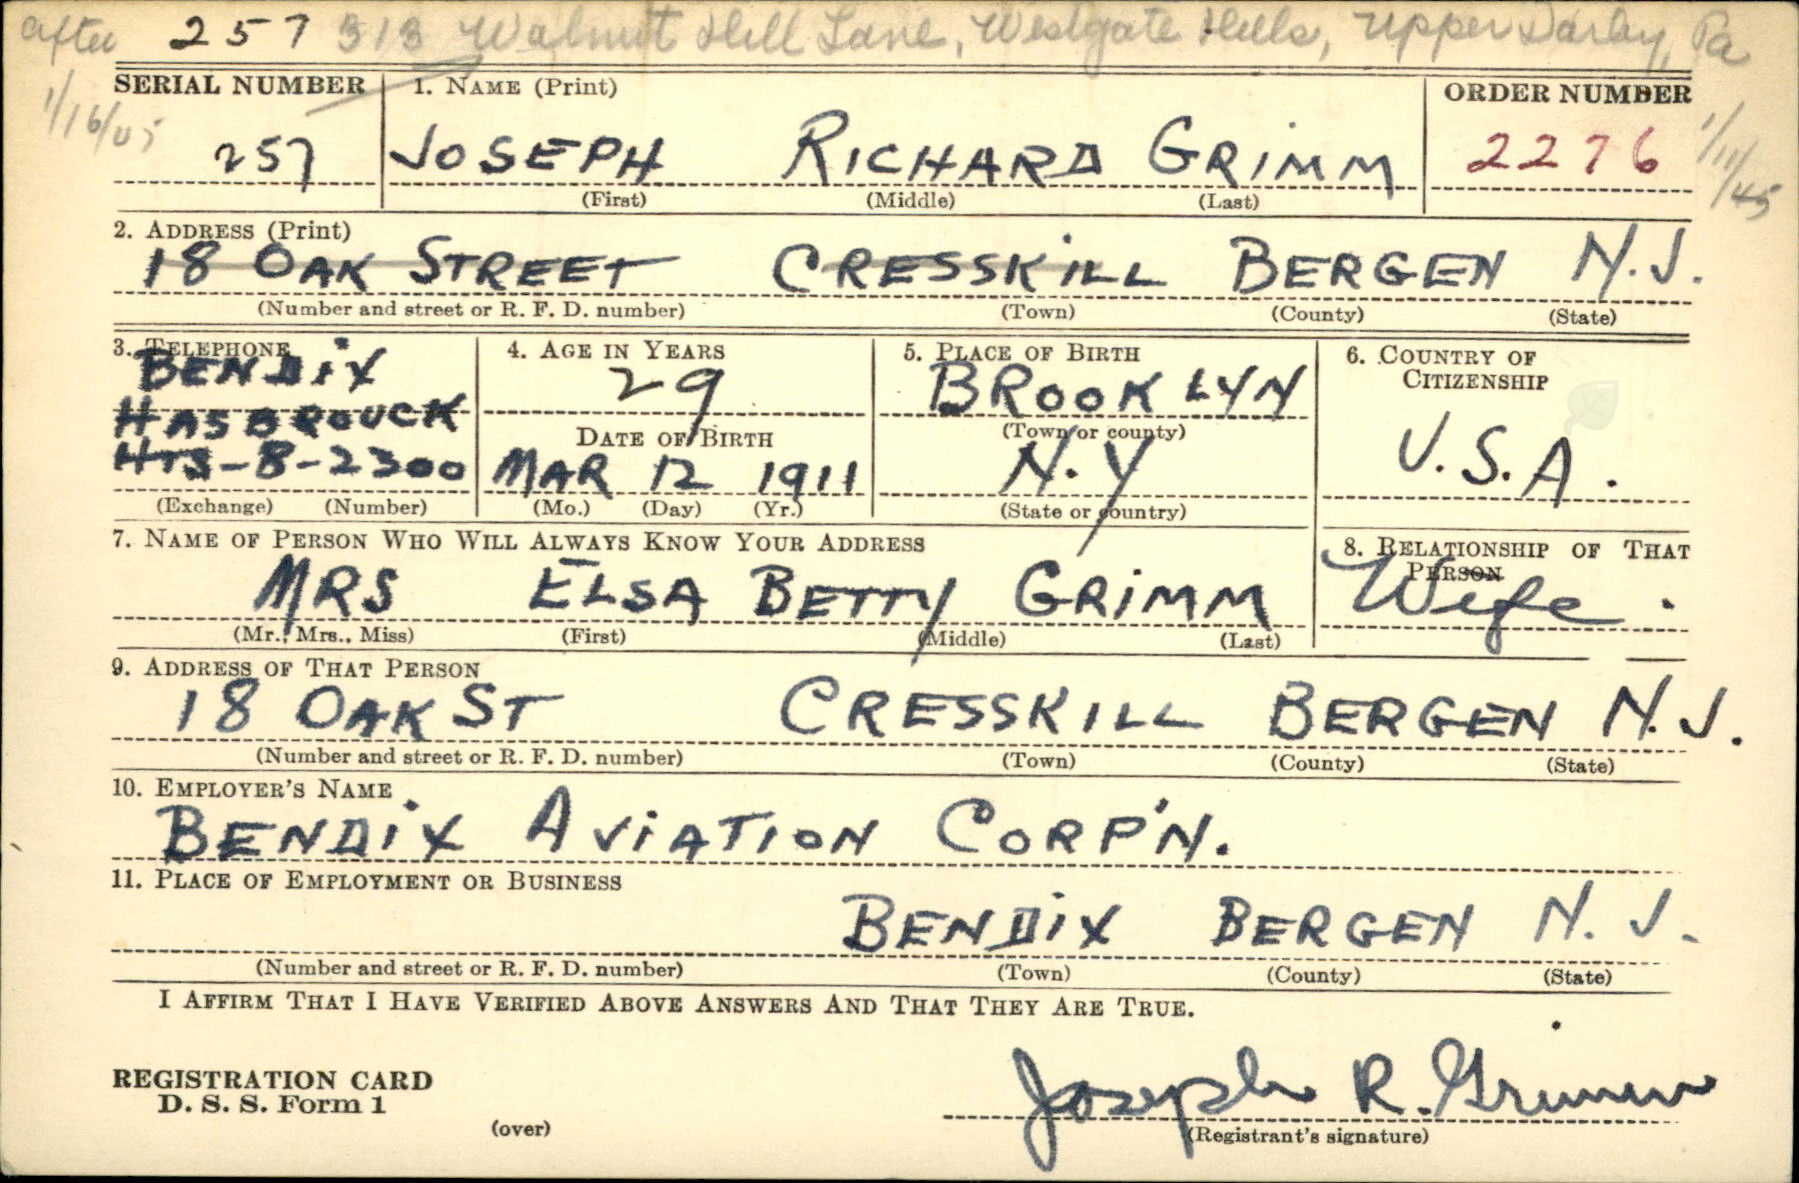 after 257 313 Walnut Hill Lane, Westgate Hills, Upper Darby, Pa
1/16/45
SERIAL NUMBER 1. NAME (Print) ORDER NUMBER
257 JOSEPH RICHARD GRIMM 2276 1/11/45
(First) (Middle) (Last)
2. ADDRESS (Print)
18 OAK STREET CRESSKILL BERGEN N.J.
(Number and street or R. F. D. number) (Town) (County) (State)
3. TELEPHONE 4. AGE IN YEARS 5. PLACE OF BIRTH 6. COUNTRY OF CITIZENSHIP
BENDIX 29 BROOKLYN
HASBROUCK DATE OF BIRTH (Town or county) U.S.A.
HTS-8-2300 MAR 12 1911 N.Y
(Exchange) (Number) (Mo.) (Day) (Yr.) (State or country)
7. NAME OF PERSON WHO WILL ALWAYS KNOW YOUR ADDRESS 8. RELATIONSHIP OF THAT PERSON
MRS ELSA BETTY GRIMM Wife.
(Mr., Mrs., Miss) (First) (Middle) (Last)
9. ADDRESS OF THAT PERSON
18 OAK ST CRESSKILL BERGEN N.J.
(Number and street or R. F. D. number) (Town) (County) (State)
10. EMPLOYER'S NAME
BENDIX AVIATION CORP'N.
11. PLACE OF EMPLOYMENT OR BUSINESS
BENDIX BERGEN N.J.
(Number and street or R. F. D. number) (Town) (County) (State)
I AFFIRM THAT I HAVE VERIFIED ABOVE ANSWERS AND THAT THEY ARE TRUE.
REGISTRATION CARD
D. S. S. Form 1
(over)
Joseph R. Grimm
(Registrant's signature)